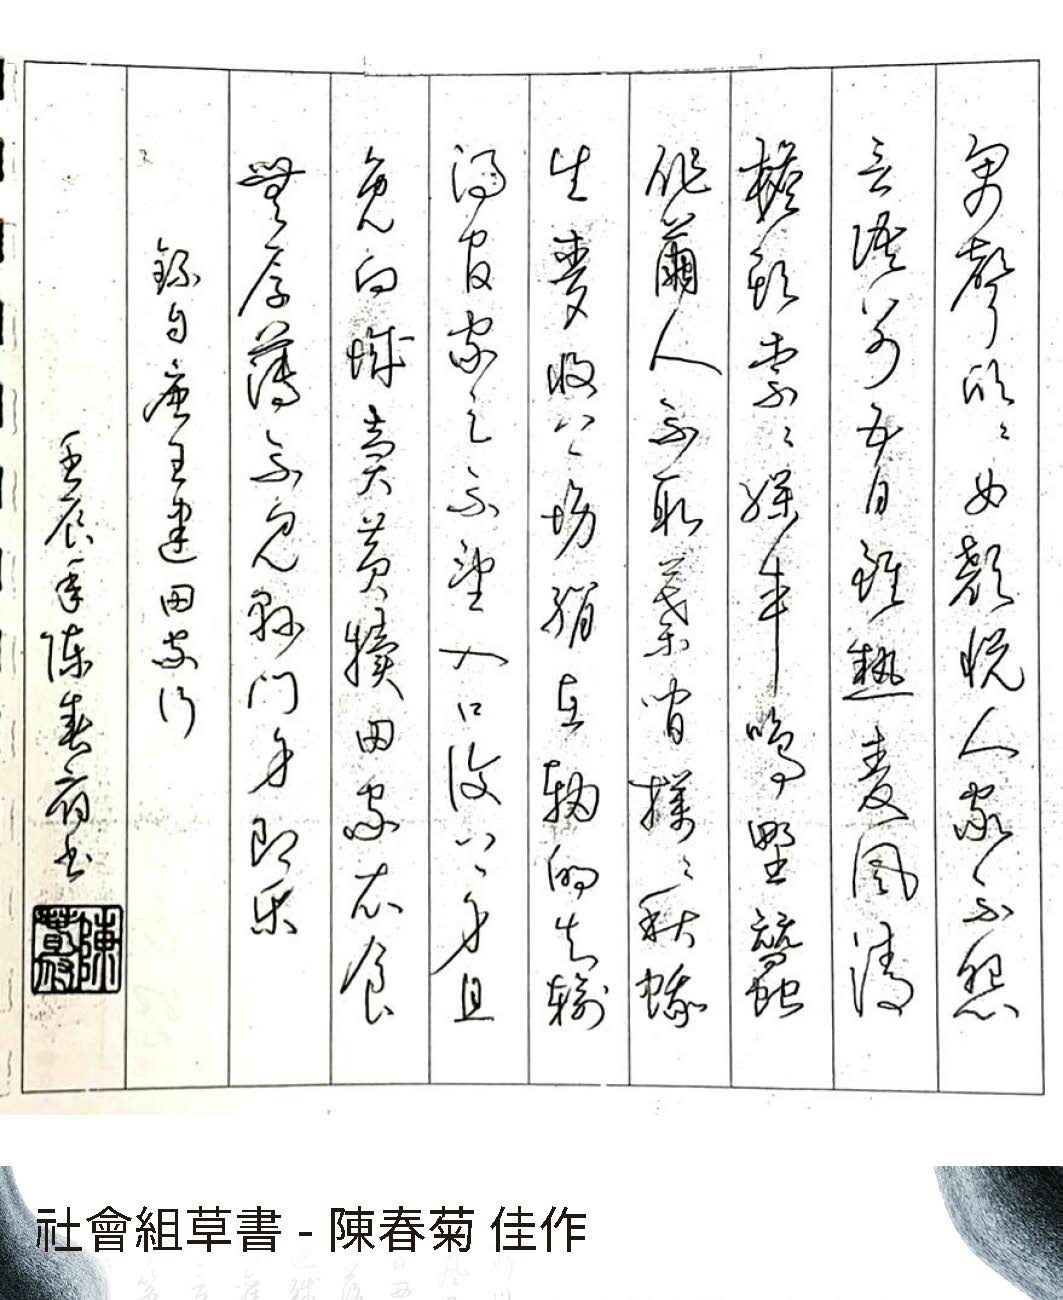 男聲欣々女顏悅人家不怨
言語別五月雖熱麥風清
檐頭索々繰車鳴野蠶
作繭人不取葉間撲々秋蛾
生麥收上場絹在軸的知輸
得官家足不望入口復上身且
免向城賣黃犢田家衣食
無厚薄不見縣門身即樂
錄自唐王建田家行
壬辰年陳春菊書
社會組草書 - 陳春菊 佳作